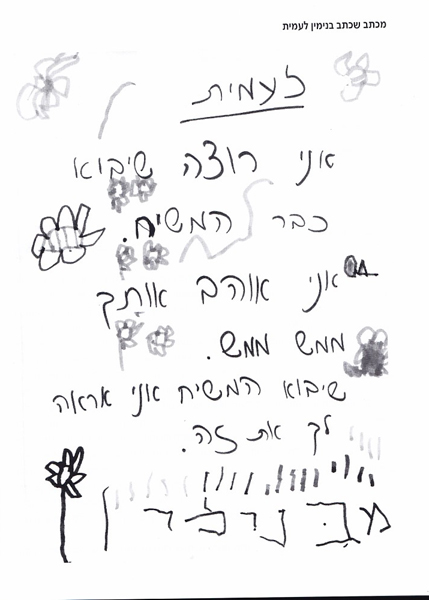 מכתב שכתב בנימין לעמית
לעמית
אני רוצה שיבוא
כבר המשיח.
אני אוהב אותך
ממש ממש.
שיבוא המשיח אני אראה
לך את זה.
מבנימין